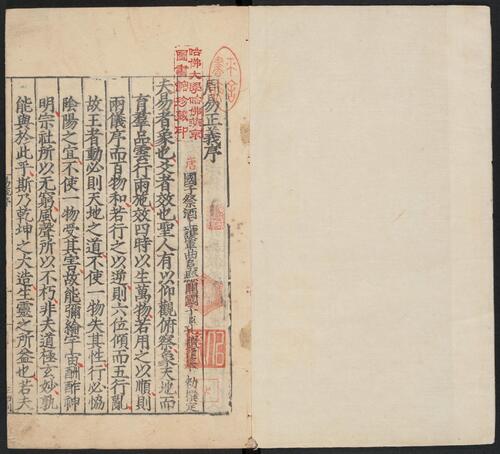 周易正義序
唐國子祭酒上護軍曲阜縣開國子臣孔穎達奉勑撰定
夫易者象也爻者效也聖人有以仰觀俯察象天地而
育群品雲行雨施效四時以生萬物若用之以順則
兩儀序而百物和若行之以逆則六位傾而五行亂
故王者動必則天地之道不使一物失其性行必恊
陰陽之宜不使一物受其害故能彌綸宇宙酬酢神
明宗社所以无窮風聲所以不朽非夫道極玄妙孰
能與於此乎斯乃乾坤之大造生靈之所益也若夫
哈佛大學哈佛燕京
圖書館珍藏印